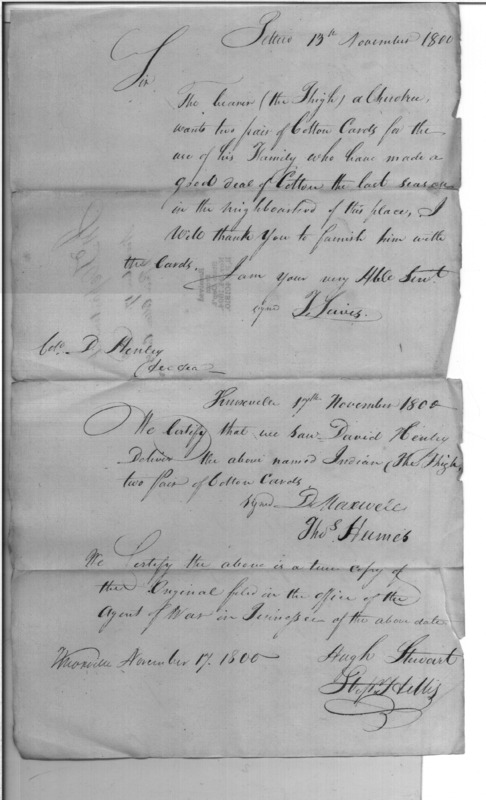 Tellico 13th November 1800
Sir
The bearer (the Thigh) a Cherokee,
wants two pair of Cotton Cards for the
use of his Family who have made a
good deal of Cotton the last season
in the neighbourhood of this place, I
Will thank you to furnish him with
the Cards.
I am your very Hble Servt.
signd S. Lewis.
Colo. D Henley
&c &c &c
Knoxville 17th November 1800
We Certify that we saw David Henley
Deliver the above named Indian (The Thigh)
two pair of Cotton Cards
signd D Maxwell
Thos. Humes
We Certify the above is a true copy of
the Original filed in the office of the
Agent of War in Tennessee of the above date
Knoxville November 17. 1800
Hugh Stewart